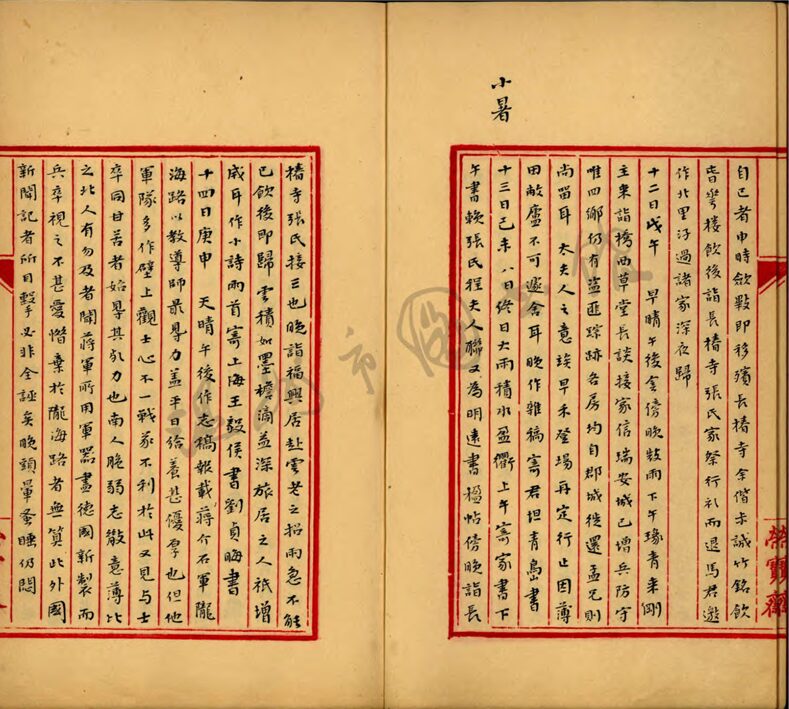 小暑
自己者申時斂斂即移殯長椿寺余偕卡誠竹銘飲
春華樓飲後詣長椿寺張氏家祭行礼而退馬君邀
作北里游過諸家深夜歸
十二日戊午 早晴午後会傍晚数雨下午琢青来剛
主来詣橋西草堂長談接家信瑞安城已增兵防守
唯四鄉仍有盜匪踪跡各房均自郡城徙還孟兄則
尚留耳 太夫人之意俟早禾登場再定行止因薄
田敝廬不可遽舍耳晚作雜稿寄君坦青島書
十三日己未 八日終日大雨積水盈衢上午寄家書下
午書輓張氏程夫人聯又為明遠書楹帖傍晚詣長
椿寺張氏接三也晚詣福興居赴雲老之招雨急不能
已飲後即歸雲積如墨檐滴益深旅居之人祇增
感耳作小詩兩首寄上海王毅侯書劉貞晦書
十四日庚申 天晴午後作志稿報載蔣介石軍隴
海路以教導師最得力盖平日給養甚優厚也但他
軍隊多作壁上觀士心不一戰家不利於此又見与士
卒同甘苦者始得其死力也南人脆弱志散意薄比
之北人有勿及者聞蔣軍所用軍器盡德國新製而
兵卒視之不甚愛惜棄於隴海路者無算此外國
新聞記者所目擊必非全誣矣晚頭暈蚤睡仍悶
榮寶齋